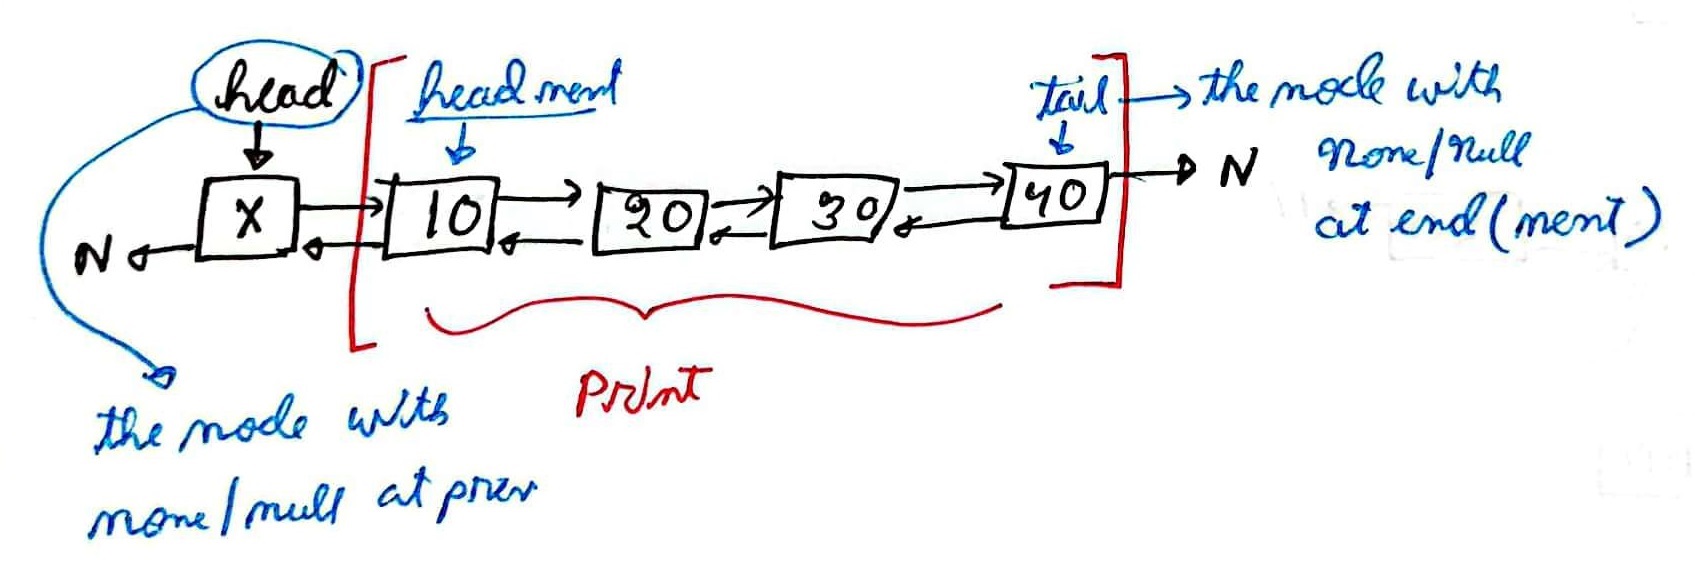 head
head next
tail → the node with
none/null
at end (next)
N
X
10
20
30
40
N
Print
the node with
none/null at prev